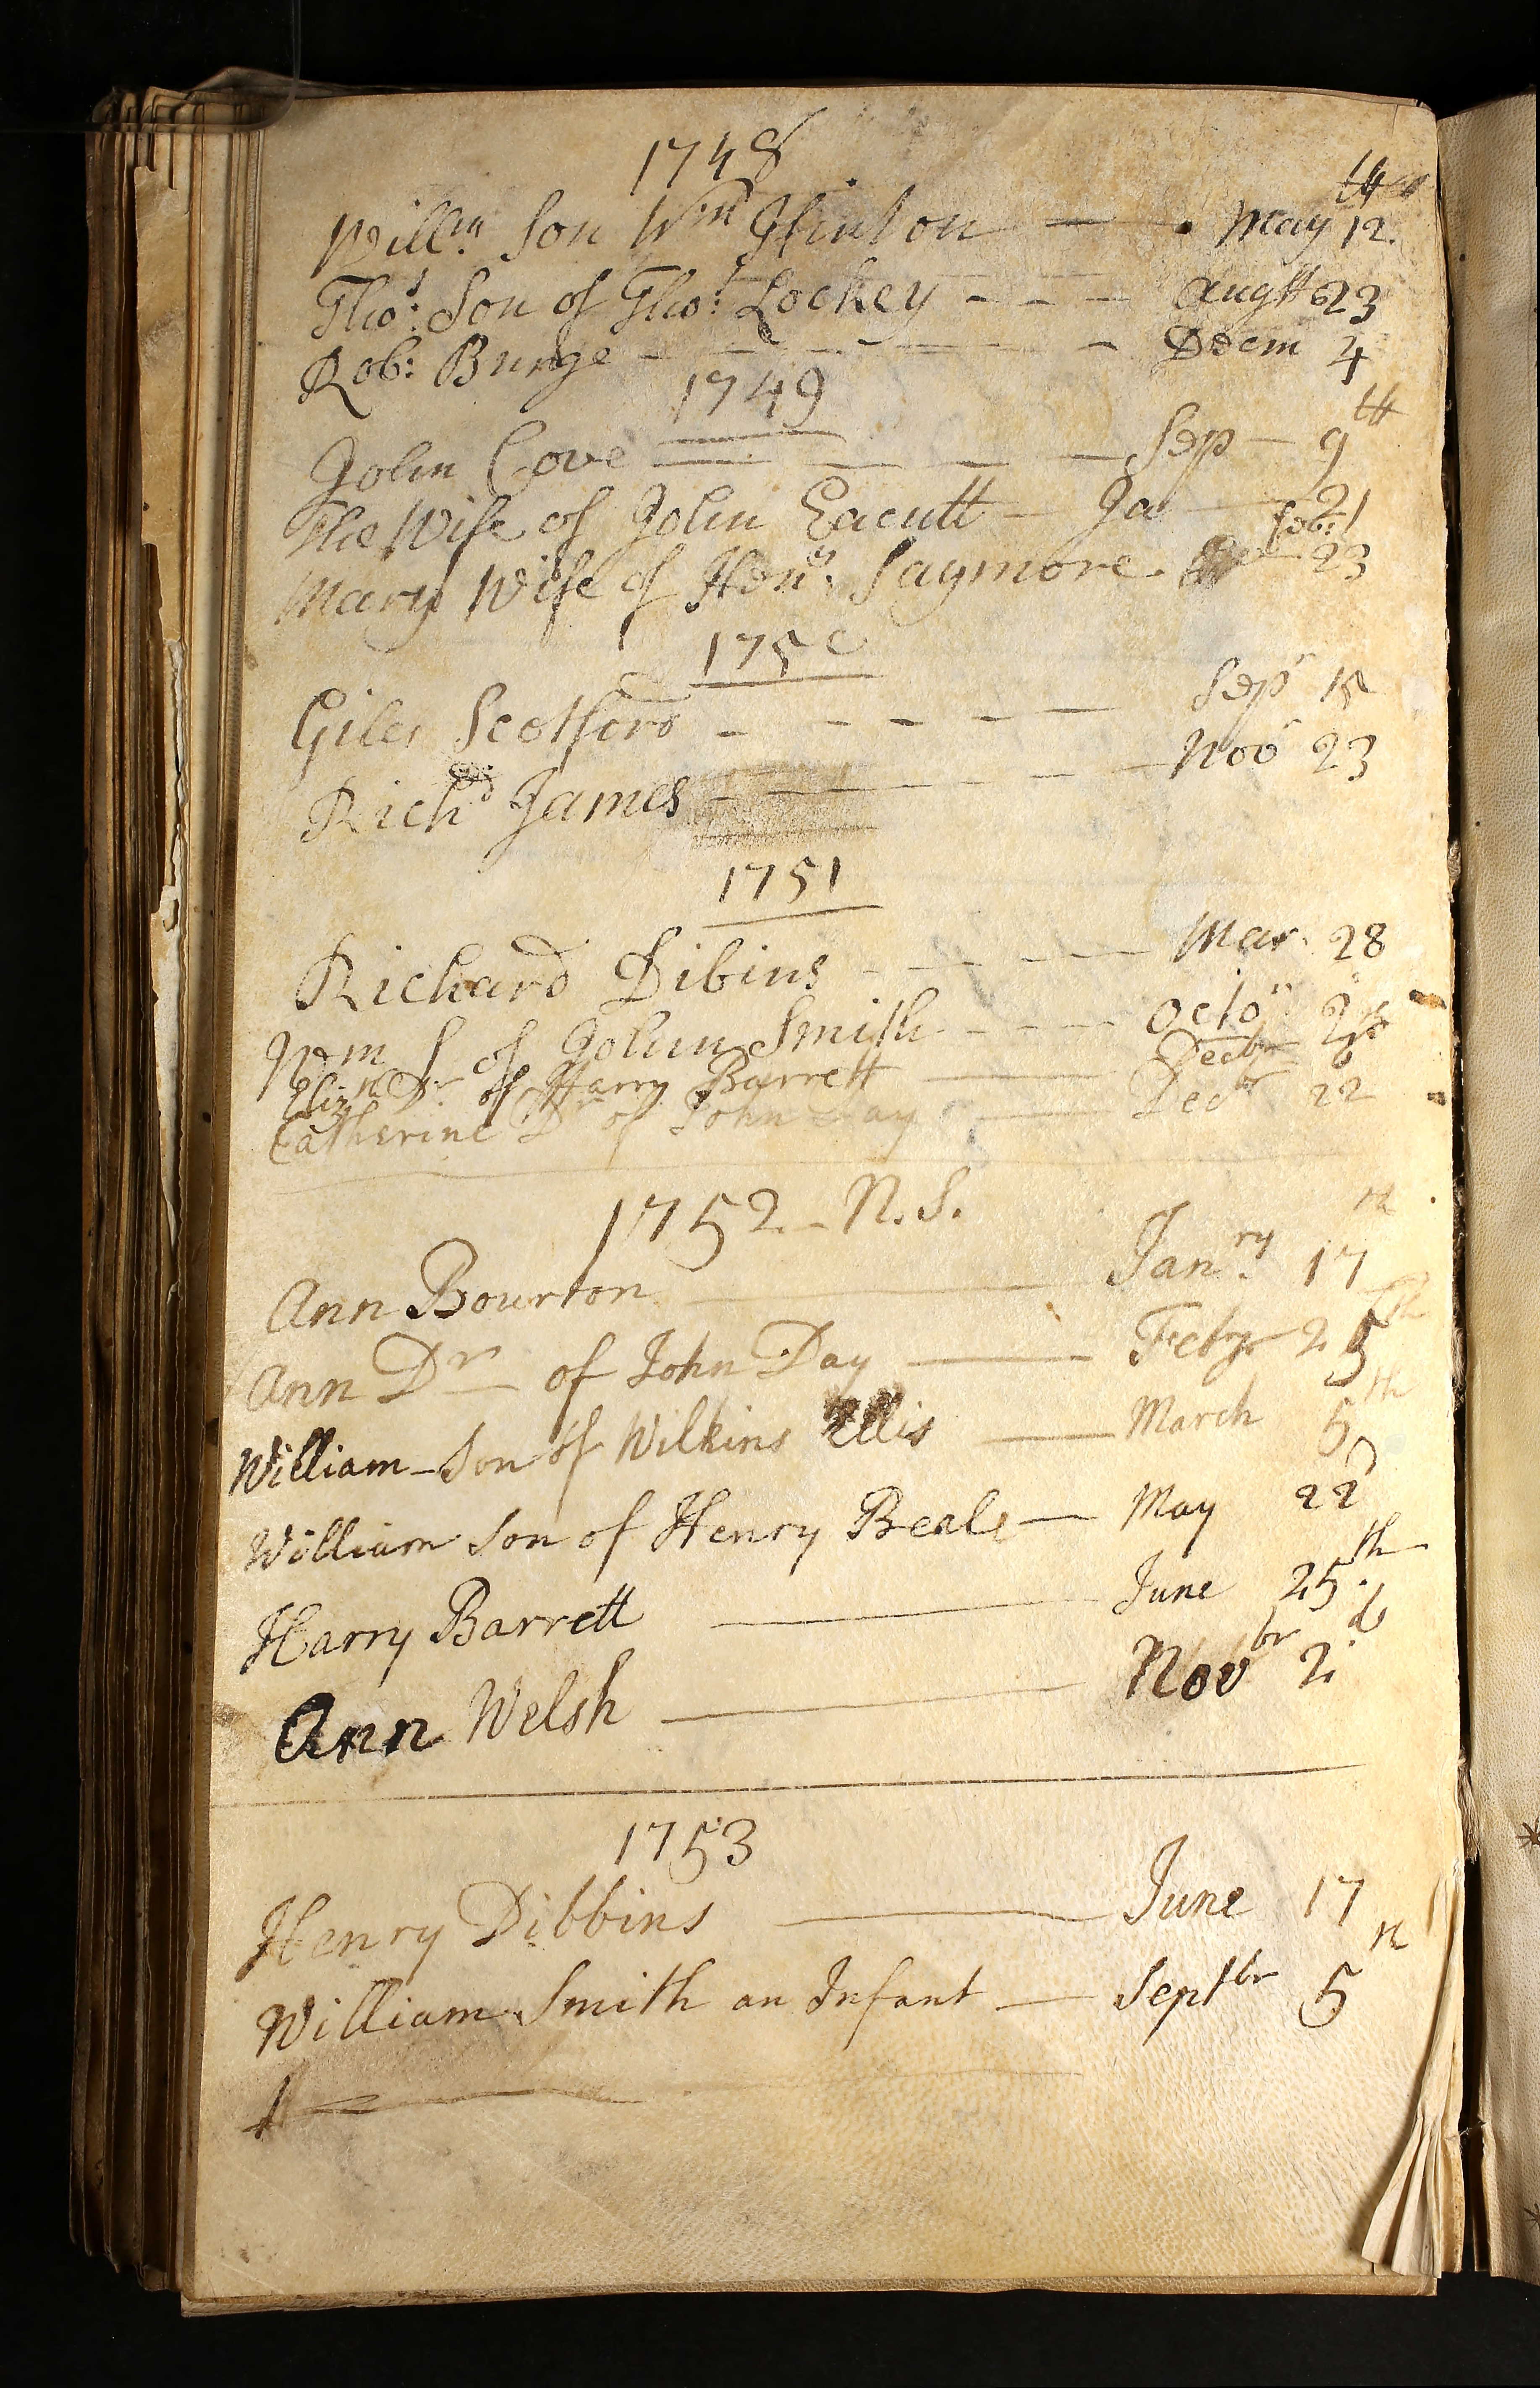 1748
Will:m Son Wm Hinton — May 12th
Tho:s Son of Tho:s Lockey - - - Augst 23
Rob: Burge - - - - Decm 4
1749
John Cove — — — Sep — 9th
The Wife of John Eacutt — Ja — 21
Mary Wife of Hen:y Saymore. Feb: 23
1750
Giles Scotford - - - - - Sepr 15
Richd James - - - - - Novr 23
1751
Richard Dibins - - - Mar. 28
Wm S of John Smith - - - Octor
Elizth Dr of Harry Barrett — Decbr
Catherine Dr of John Day — Decbr 22
1752 - N.S.
Ann Bourton — Jan:ry 17th
Ann Dr of John Day — Feby 25th
William - Son of Wilkins Ellis — March 5th
William Son of Henry Beale — May 22d
Harry Barrett — June 25th
Ann Welsh — Novbr 2d
1753
Henry Dibbins — June 17
William Smith an Infant — Septbr 5th